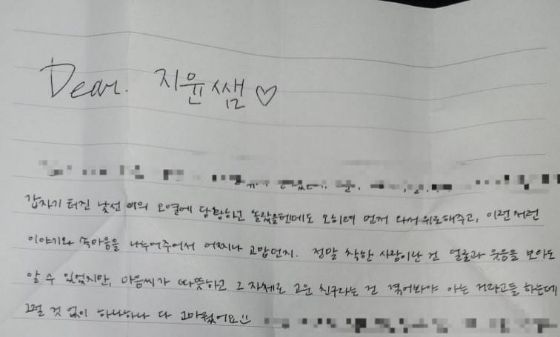 Dear. 지윤쌤♡
갑자기 터진 낯선 애의 오열에 당황하고 놀랐을텐데도 오히려 먼저 다가와 위로해주고, 이런저런
이야기와 속마음을 나누어주어서 어찌나 고맙던지. 정말 착한 사람이란 건 얼굴과 웃음을 보아도
알 수 있었지만, 마음씨가 따뜻하고 그 자체로 고운 친구라는 건 겪어봐야 아는 거라고들 하는데
그럴 것 없이 하나하나 다 고마웠어요